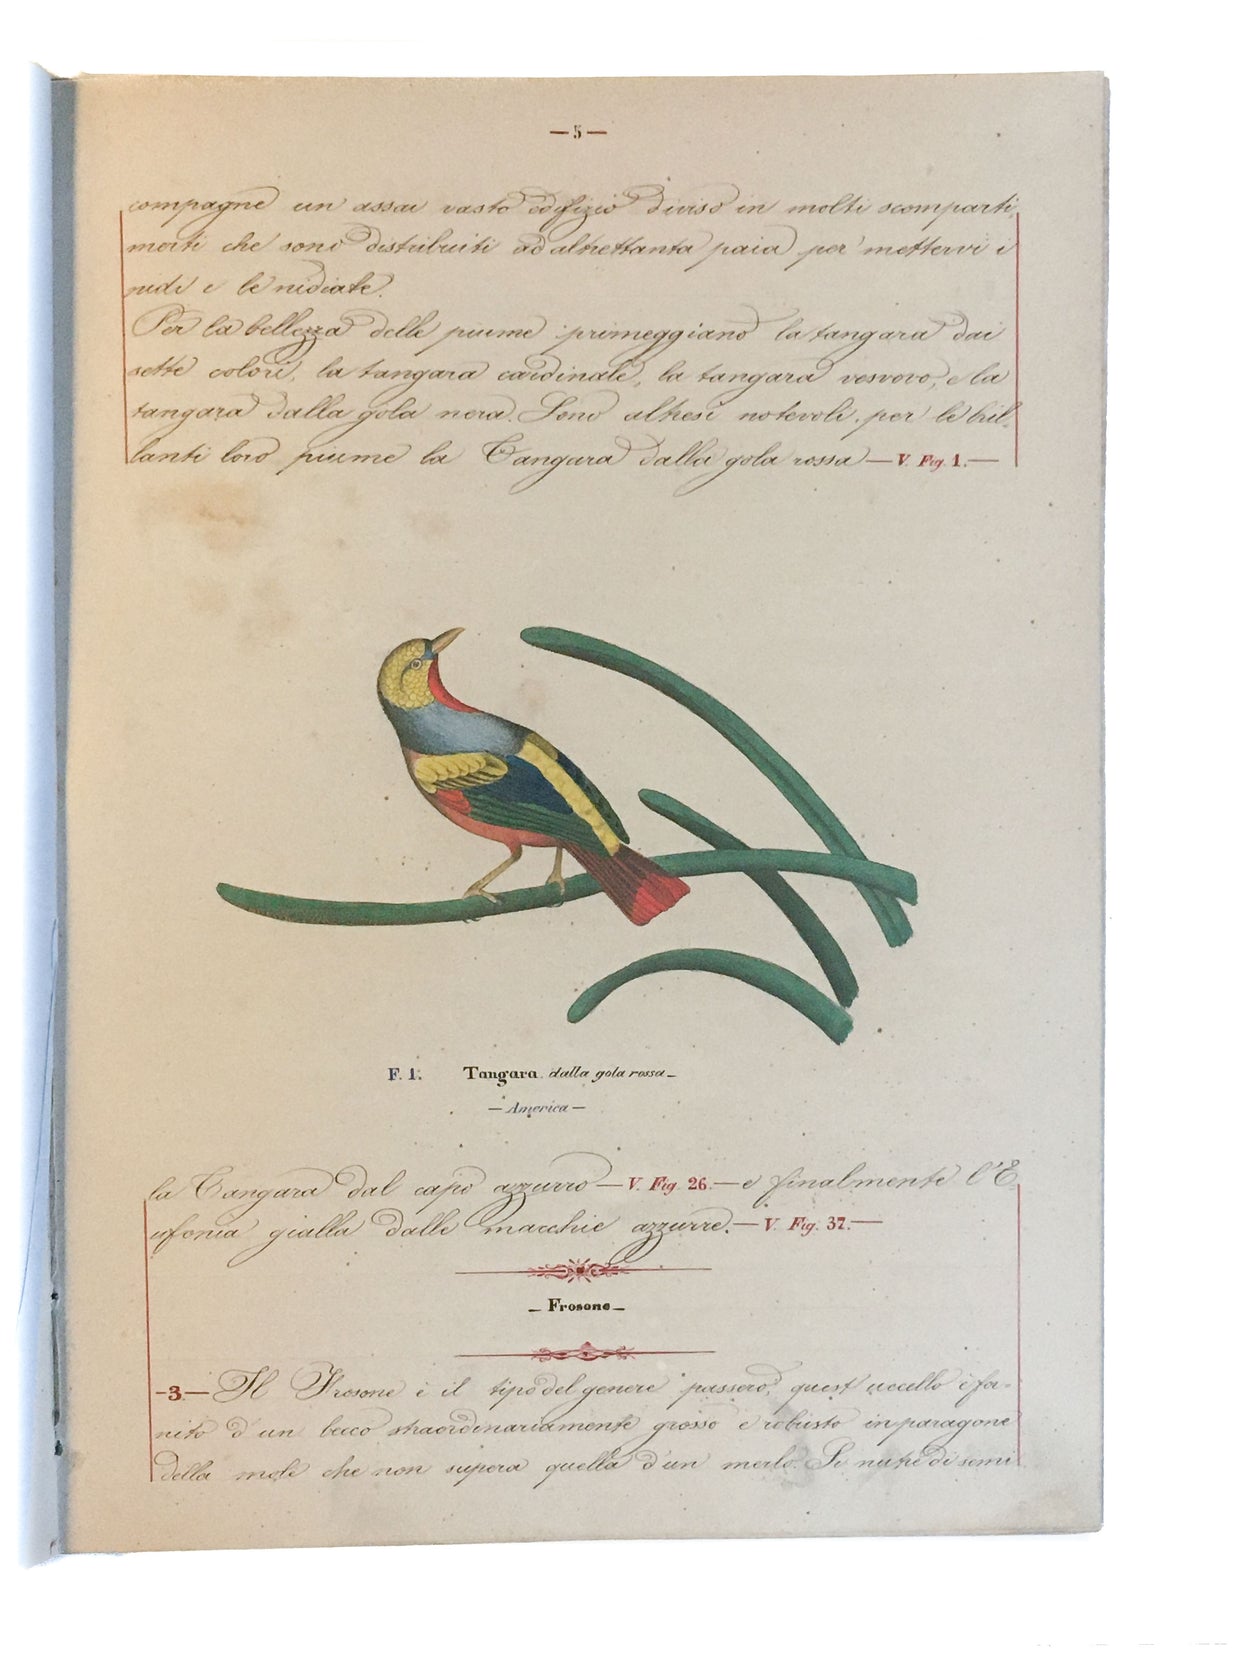 — 5 —
compagne un assai vasto edifizio diviso in molti scomparti,
menti che sono distribuiti ad altrettanta paia per mettervi i
nidi e le nidiate.
Per la bellezza delle piume primeggiano la tangara dai
sette colori, la tangara cardinale, la tangara vescovo, e la
tangara dalla gola nera. Sono altresì notevoli, per le bril-
lanti loro piume la Tangara dalla gola rossa — V. Fig. 1. —
F. 1. Tangara dalla gola rossa —
— America —
la Tangara dal capo azzurro — V. Fig. 26. — e finalmente l'E
ufonia gialla dalle macchie azzurre. — V. Fig. 37. —
— Frosone —
-3.— Il Frosone è il tipo del genere passero, quest' uccello è for-
nito d'un becco straordinariamente grosso e robusto in paragone
della mole che non supera quella d'un merlo. Si nutre di semi